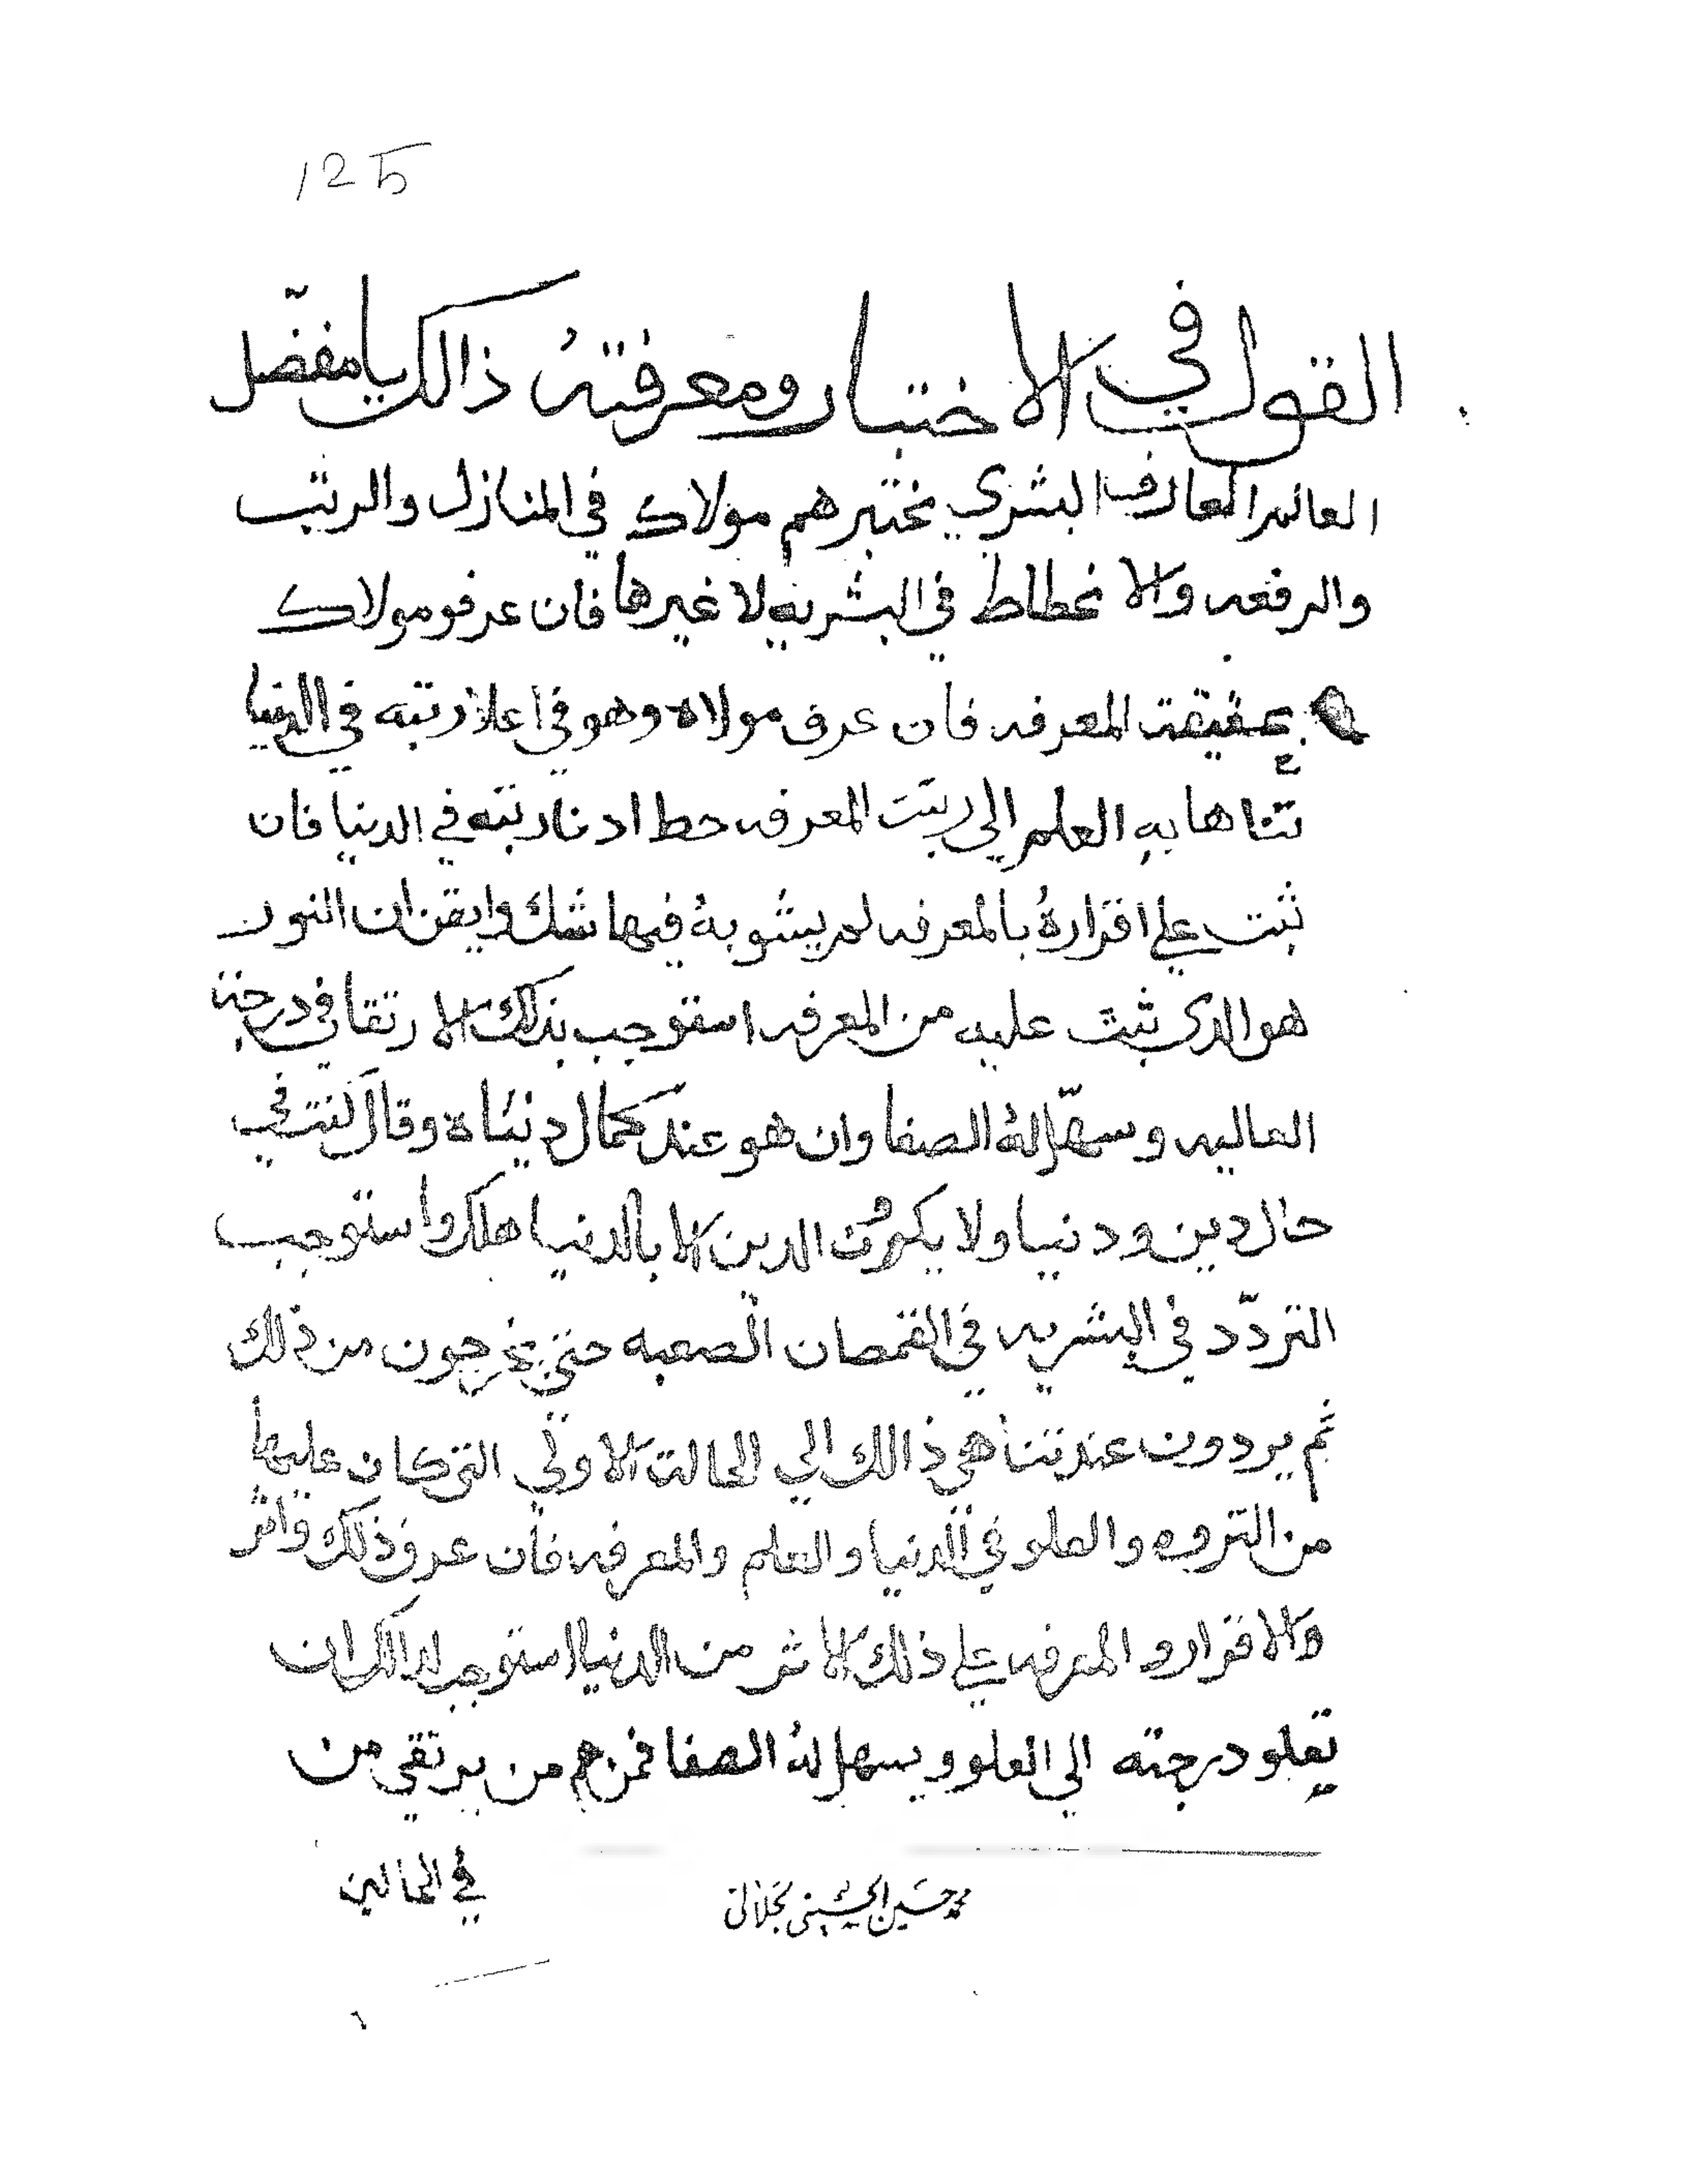 125
القول في الاختبار ومعرفته ذالك يا مفضّل
العالم العارف البشري يختبرهم مولاك في المنازل والرتب
والرفعه والانحطاط في البشريه لا غيرها فان عرفو مولاك
بحقيقت المعرفه فان عرف مولاه وهو في اعلا رتبه في الدنيا
تناها به العلم الى ربتت المعرفه حط ادنا رتبه في الدنيا فان
ثبت علي اقرارهُ بالمعرفه لم يشوبهُ فيها شك وايقن ان النور
هو الذي ثبت عليه من المعرفه استوجب بذلك الارتقا في درجته
العاليه وسهّل لهُ الصفا وان هو عند كمال دنياه وقال كنت في
حال دين ودنيا ولا يكون الدين الا بالدنيا هلك واستوجب
التردّد في البشريه في القمصان الصعبه حتى يخرجون من ذلك
ثم يردون عند تناهي ذالك الي الحالت الاولي التي كان عليها
من الثروه والعلو في الدنيا والعلم والمعرفه فان عرف ذلك واثر
والاقرار والمعرفه علي ذلك الاثر من الدنيا استوجب لذالك ان
تعلو درجته الى العلو ويسهل لهُ الصفا فمنهم من يرتقي من
في الحالين
محمد حسين الحسيني الجلالي